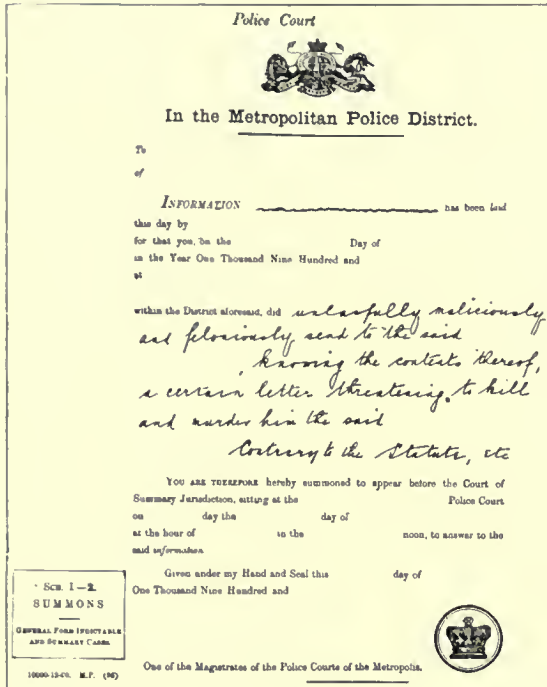 Police Court
In the Metropolitan Police District.
To
of
INFORMATION has been laid
this day by
for that you, on the Day of
in the Year One Thousand Nine Hundred and
at
within the District aforesaid, did unlawfully maliciously
and feloniously send to the said
, knowing the contents thereof,
a certain letter threatening to kill
and murder him the said
Contrary to the Statute, etc
YOU ARE THEREFORE hereby summoned to appear before the Court of
Summary Jurisdiction, sitting at the Police Court
on day the day of
at the hour of in the noon, to answer to the
said information
Given under my Hand and Seal this day of
One Thousand Nine Hundred and
SCH. I—2.
SUMMONS
GENERAL FORM INDICTABLE
AND SUMMARY CASES.
M.P. (96)
One of the Magistrates of the Police Courts of the Metropolis.